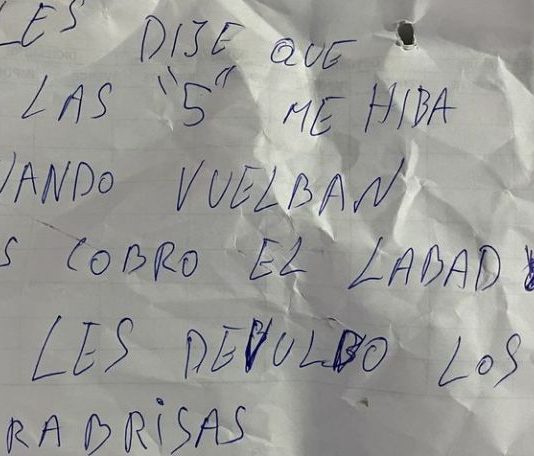 LES DIJE QUE
LAS "5" ME HIBA
UANDO VUELBAN
S COBRO EL LABAD
LES DEVULBO LOS
RABRISAS